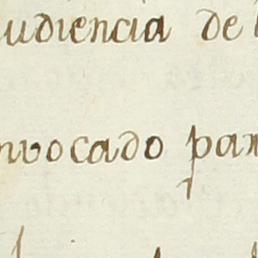 udiencia de
nvocado par